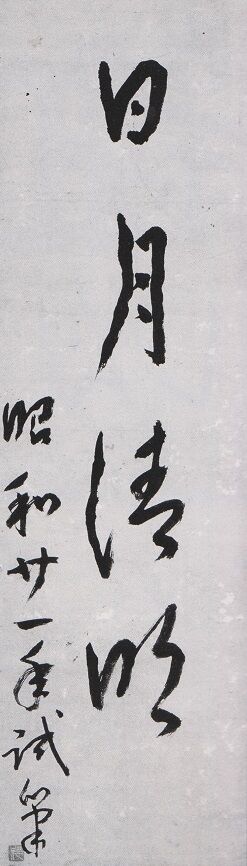 日月清明
昭和廿一年試筆